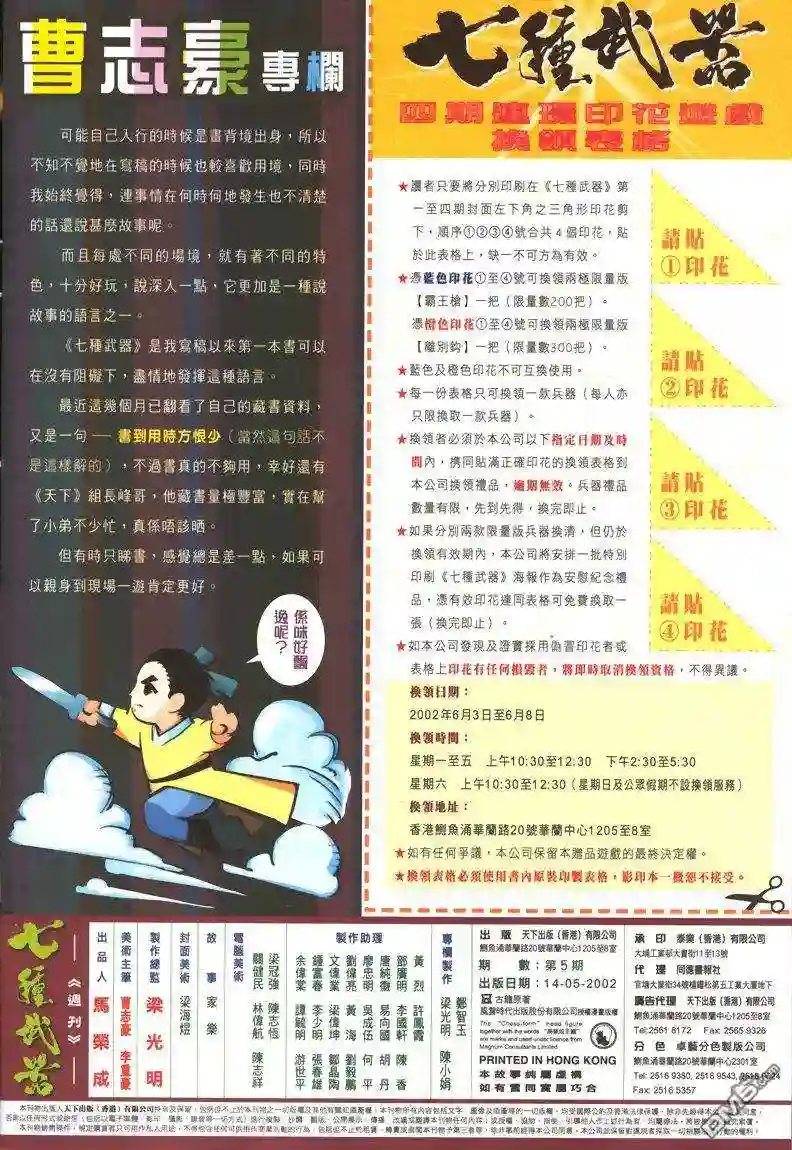 曹志豪專欄
可能自己入行的時候是畫背境出身，所以
不知不覺地在寫稿的時候也較喜歡用境，同時
我始終覺得，連事情在何時何地發生也不清楚
的話還說甚麼故事呢。
而且每處不同的場境，就有著不同的特
色，十分好玩，說深入一點，它更加是一種說
故事的語言之一。
《七種武器》是我寫稿以來第一本書可以
在沒有阻礙下，盡情地發揮這種語言。
最近這幾個月已翻看了自己的藏書資料，
又是一句 —— 書到用時方恨少（當然這句話不
是這樣解的），不過書真的不夠用，幸好還有
《天下》組長峰哥，他藏書量極豐富，實在幫
了小弟不少忙，真係唔該晒。
但有時只睇書，感覺總是差一點，如果可
以親身到現場一遊肯定更好。
係咪好飄
逸呢？
七種武器
四期連環印花遊戲
換領表格
★讀者只要將分別印刷在《七種武器》第
一至四期封面左下角之三角形印花剪
下，順序①②③④號合共4個印花，貼
於此表格上，缺一不可方為有效。
★憑藍色印花①至④號可換領兩極限量版
【霸王槍】一把（限量數200把）。
憑橙色印花①至④號可換領兩極限量版
【離別鈎】一把（限量數300把）。
★藍色及橙色印花不可互換使用。
★每一份表格只可換領一款兵器（每人亦
只限換取一款兵器）。
★換領者必須於本公司以下指定日期及時
間內，携同貼滿正確印花的換領表格到
本公司換領禮品，逾期無效。兵器禮品
數量有限，先到先得，換完即止。
★如果分別兩款限量版兵器換清，但仍於
換領有效期內，本公司將安排一批特別
印刷《七種武器》海報作為安慰紀念禮
品，憑有效印花連同表格可免費換取一
張（換完即止）。
★如本公司發現及證實採用偽冒印花者或
表格上印花有任何損毀者，將即時取消換領資格，不得異議。
請貼
①印花
請貼
②印花
請貼
③印花
請貼
④印花
換領日期：
2002年6月3日至6月8日
換領時間：
星期一至五　上午10:30至12:30　下午2:30至5:30
星期六　上午10:30至12:30（星期日及公眾假期不設換領服務）
換領地址：
香港鰂魚涌華蘭路20號華蘭中心1205至8室
★如有任何爭議，本公司保留本贈品遊戲的最終決定權。
★換領表格必須使用書內原裝印製表格，影印本一概恕不接受。
七種武器
《週刊》
出品人　馬榮成
美術主筆　曹志豪　李重豪
製作總監　梁光明
封面美術　梁海煜
故事　家樂
電腦美術
梁冠強　陳志恆
關健民　林偉航　陳志祥
製作助理
黃烈　許鳳霞
鄧廣明　李國軒　陳香
唐純徽　易向國　胡丹
廖忠明　吳成伍　何平
劉偉亮　黃海　劉毅鵬
文偉業　梁偉坤　鄒晶陶
鍾富春　李少明　張春雄
余偉業　譚毓明　游世平
專欄製作
鄭智玉
梁光明　陳小娟
出版　天下出版（香港）有限公司
鰂魚涌華蘭路20號華蘭中心1205至8室
期數：第5期
出版日期：14-05-2002
古龍原著
風聲時代出版股份有限公司授權漫畫版權
The "Chess-form" head figure
together with the words
are marks and used under licence from
Magnum Consultants Limited
PRINTED IN HONG KONG
本故事純屬虛構
如有雷同實屬巧合
承印　泰業（香港）有限公司
大埔工業邨大貴街11至13號
代理　同德書報社
官塘大業街34號楊耀松第五工業大厦地下
廣告代理　天下出版（香港）有限公司
鰂魚涌華蘭路20號華蘭中心1205至8室
Tel:2561 8172　Fax: 2565 9326
分色　卓藝分色製版公司
鰂魚涌華蘭路20號華蘭中心2301室
Tel: 2516 9380, 2516 9543, 2516 9624
Fax: 2516 5357